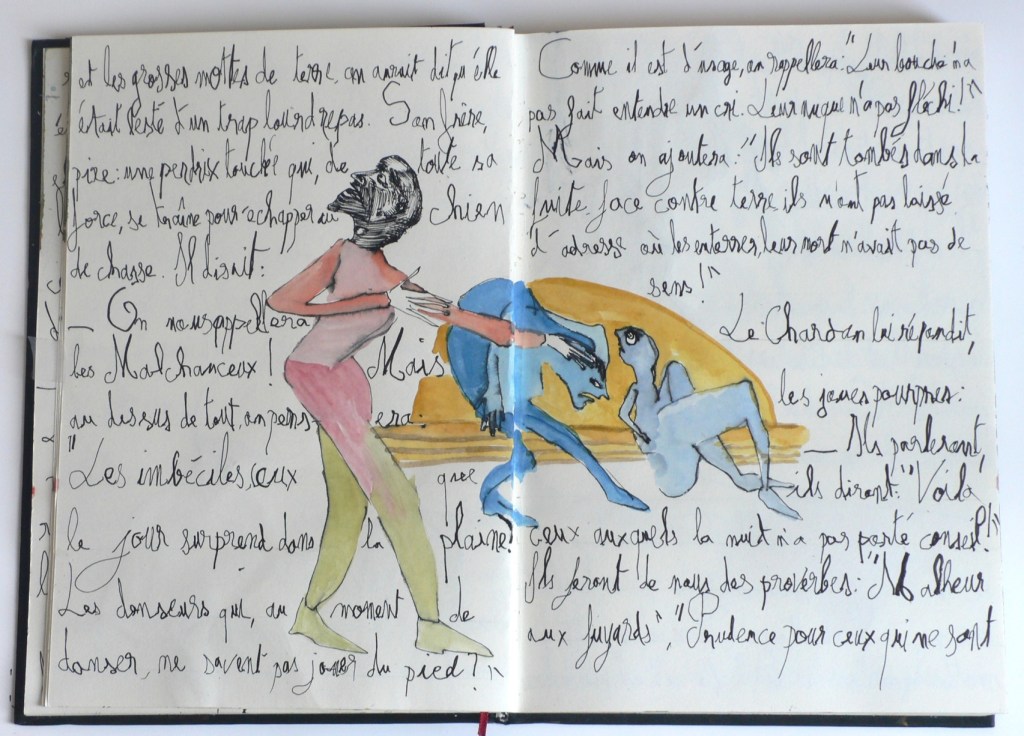 et les grosses mottes de terre, on aurait dit qu'elle
était lesté d'un trop lourd repas. Son frère,
pire : une perdrix touchée qui, de toute sa
force, se traîne pour echapper au chien
de chasse. Il disait :
— On nous appellera
les Malchanceux ! Mais
au dessus de tout, on pensera :
"Les imbéciles, ceux que
le jour surprend dans la plaine !
Les danseurs qui, au moment de
danser, ne savent pas jouer du pied ?"
Comme il est d'usage, on rappellera : "Leur bouche n'a
pas fait entendre un cri. Leur nuque n'a pas fléchi !"
Mais on ajoutera : "Ils sont tombés dans la
fuite face contre terre, ils n'ont pas laissé
d'adresse où les enterrer, leur mort n'avait pas de
sens !"
Le Chardon lui répondit,
les joues pourpres :
— Ils parleront,
ils diront : "Voilà
ceux auxquels la nuit n'a pas porté conseil !"
Ils feront de nous des proverbes : "Malheur
aux fuyards", "Prudence pour ceux qui ne sont